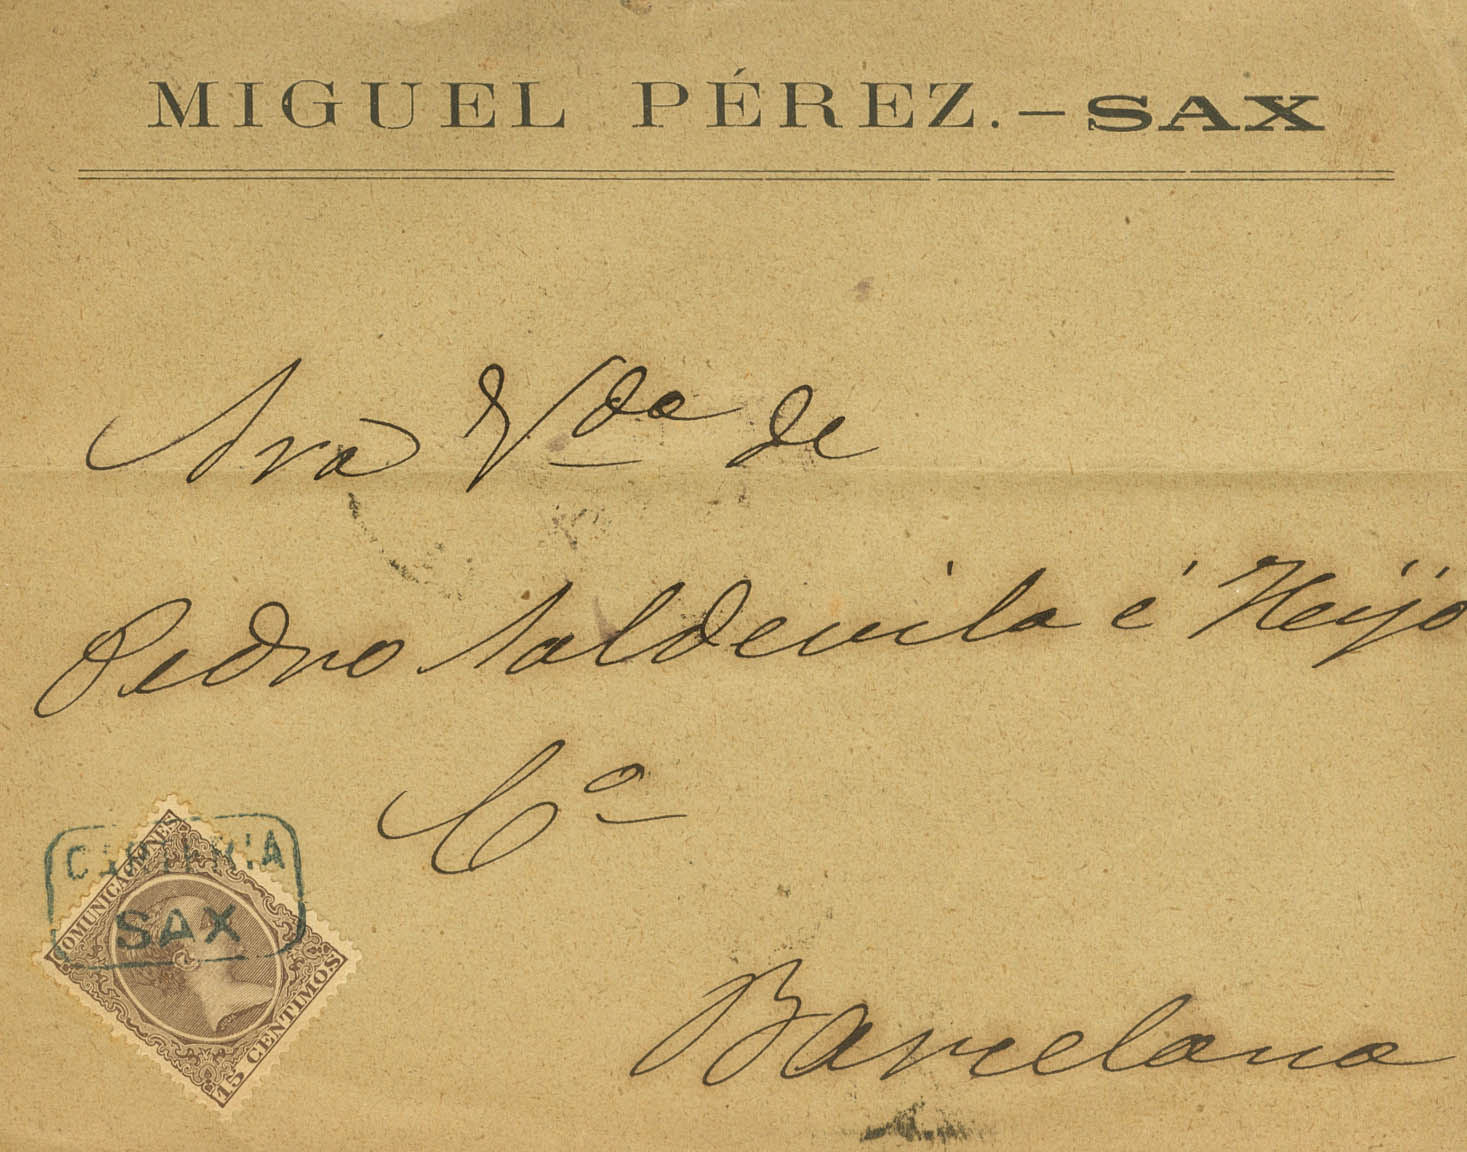 MIGUEL PÉREZ.—SAX
Sra Vda de
Pedro Saldevila é Heijo
Cª
CARTERIA
SAX
COMUNICACIONES
15 CENTIMOS
Barcelona